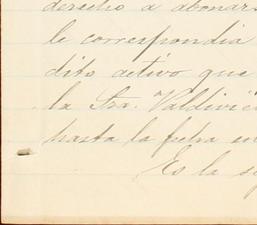 derecho a abonars
le correspondia
dito activo que
la Sra. Valdivie
hasta la fecha en
Es la s